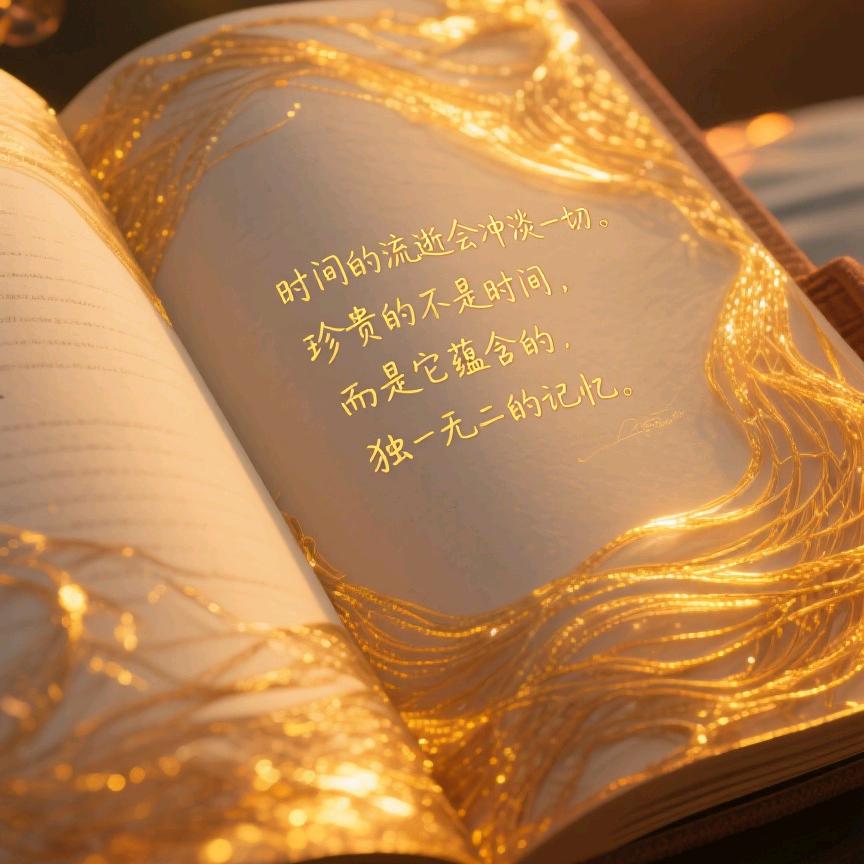 时间的流逝会冲淡一切。
珍贵的不是时间，
而是它蕴含的，
独一无二的记忆。